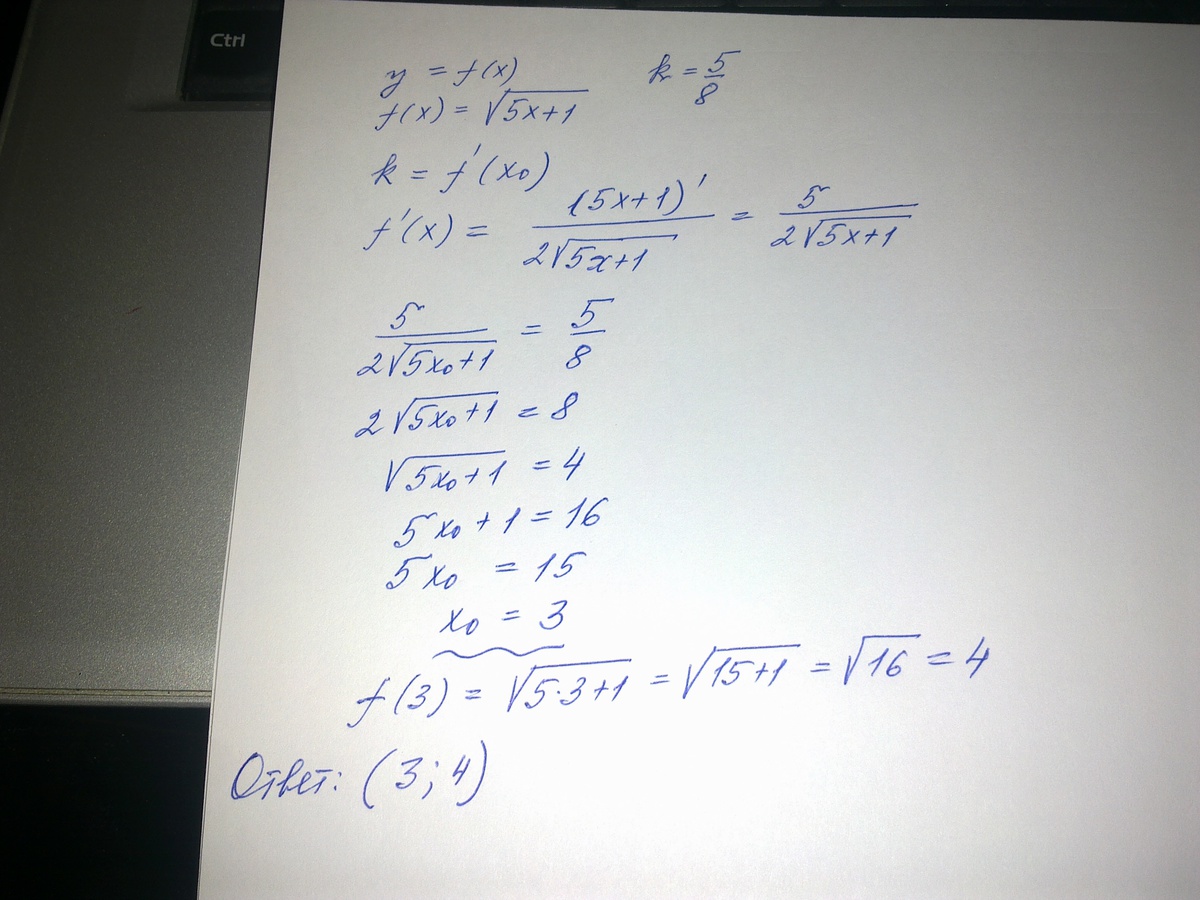 Ctrl
y = f(x) k = 5/8
f(x) = √(5x+1)
k = f'(x₀)
f'(x) = (5x+1)' / 2√(5x+1) = 5 / 2√(5x+1)
5 / 2√(5x₀+1) = 5/8
2√(5x₀+1) = 8
√(5x₀+1) = 4
5x₀ + 1 = 16
5x₀ = 15
x₀ = 3
f(3) = √(5·3+1) = √(15+1) = √16 = 4
Ответ: (3; 4)